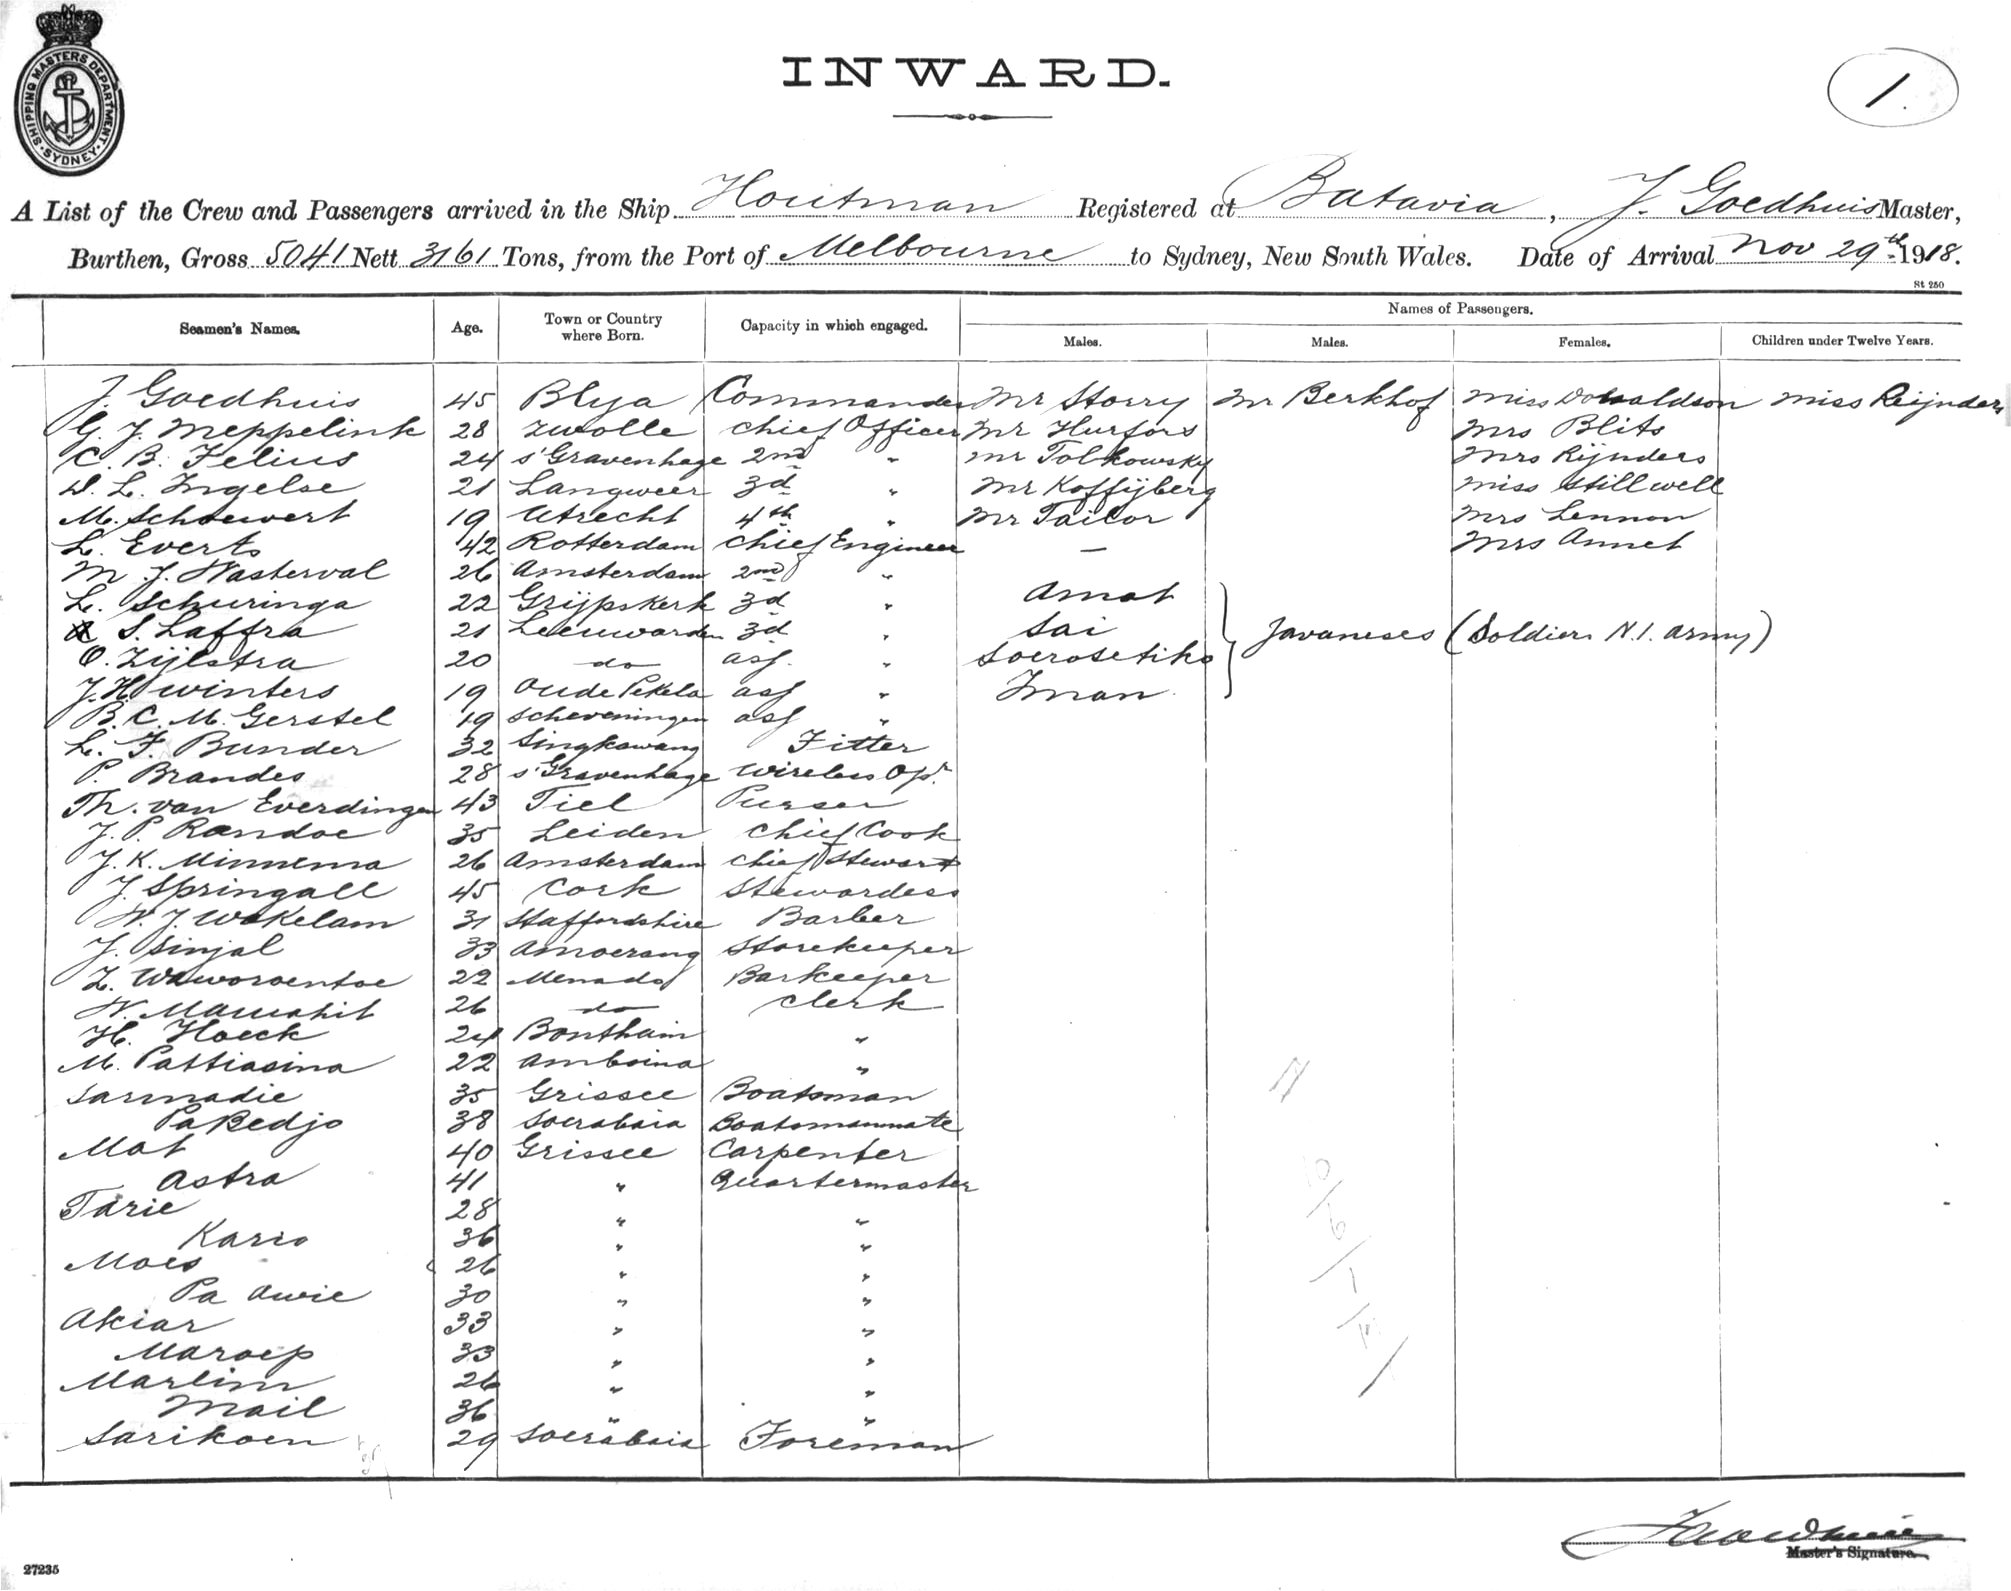 SHIPPING MASTERS DEPARTMENT
SYDNEY
INWARD.
1.
A List of the Crew and Passengers arrived in the Ship Houtman Registered at Batavia, J. Goedhuis Master,
Burthen, Gross 5041 Nett 3161 Tons, from the Port of Melbourne to Sydney, New South Wales. Date of Arrival Nov 29th 1918.
St 250
Seamen's Names. Age. Town or Country where Born. Capacity in which engaged. Names of Passengers.
Males. Males. Females. Children under Twelve Years.
J. Goedhuis 45 Blya Commander Mr Storry Mr Berkhof Miss Donaldson Miss Reijnders
G. J. Meppelink 28 Zwolle Chief Officer Mr Hurfors Mrs Blits
C. B. Felius 24 s'Gravenhage 2nd " Mr Tolkowsky Mrs Rijnders
W. L. Ingelse 21 Langweer 3d " Mr Koffijberg Miss Stillwell
M. Schouwert 19 Utrecht 4th " Mr Tailor Mrs Lennon
L. Everts 42 Rotterdam Chief Engineer — Mrs Annet
M. J. Wasterval 26 Amsterdam 2nd "
L. Schuringa 22 Grijpskerk 3d " Amat
S. Laffra 21 Leeuwarden 3d " Sai } Javaneses (Soldiers N.I. army)
O. Zijlstra 20 do ass. " Soerosetiko
J. H. Winters 19 Oude Pekela ass " Iman
B. C. M. Gerstel 19 Scheveningen ass "
L. F. Bunder 32 Singkawang Fitter
P. Brandes 28 s'Gravenhage Wireless Opr.
Th. van Everdingen 43 Tiel Purser
J. P. Randoe 35 Leiden Chief Cook
J. K. Minnema 26 Amsterdam Chief Stewart
J. Springall 45 Cork Stewardess
W. J. Wakelam 31 Staffordshire Barber
J. Sinjal 33 Amoerang Storekeeper
Z. Waworoentoe 22 Menado Barkeeper
W. Mamahit 26 do Clerk
H. Hoeck 24 Bonthain "
M. Pattiasina 22 Amboina "
Sarmadie 35 Grissee Boatsman
Pa Redjo 38 Soerabaia Boatsmanmate
Mat 40 Grissee Carpenter
Astra 41 " Quartermaster
Tarie 28 " "
Karso 36 " "
Moes 26 " "
Pa Awie 30 " "
Akiar 33 " "
Maroep 33 " "
Marlim 26 " "
Mail 36 " "
Sarikoen 29 Soerabaia Foreman
Master's Signature.
27235